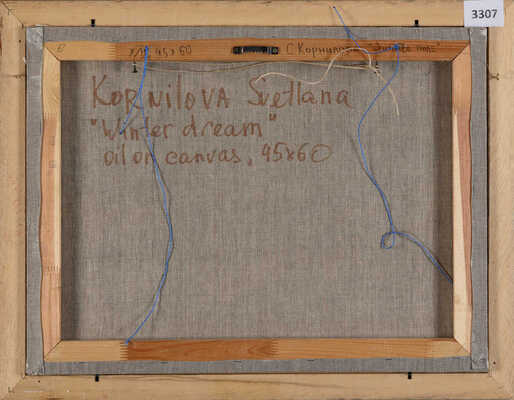 3307
х/м 45x60 С. Корнилова "Зимний
KORNILOVA Svetlana
"Winter dream"
oil on canvas, 45x60